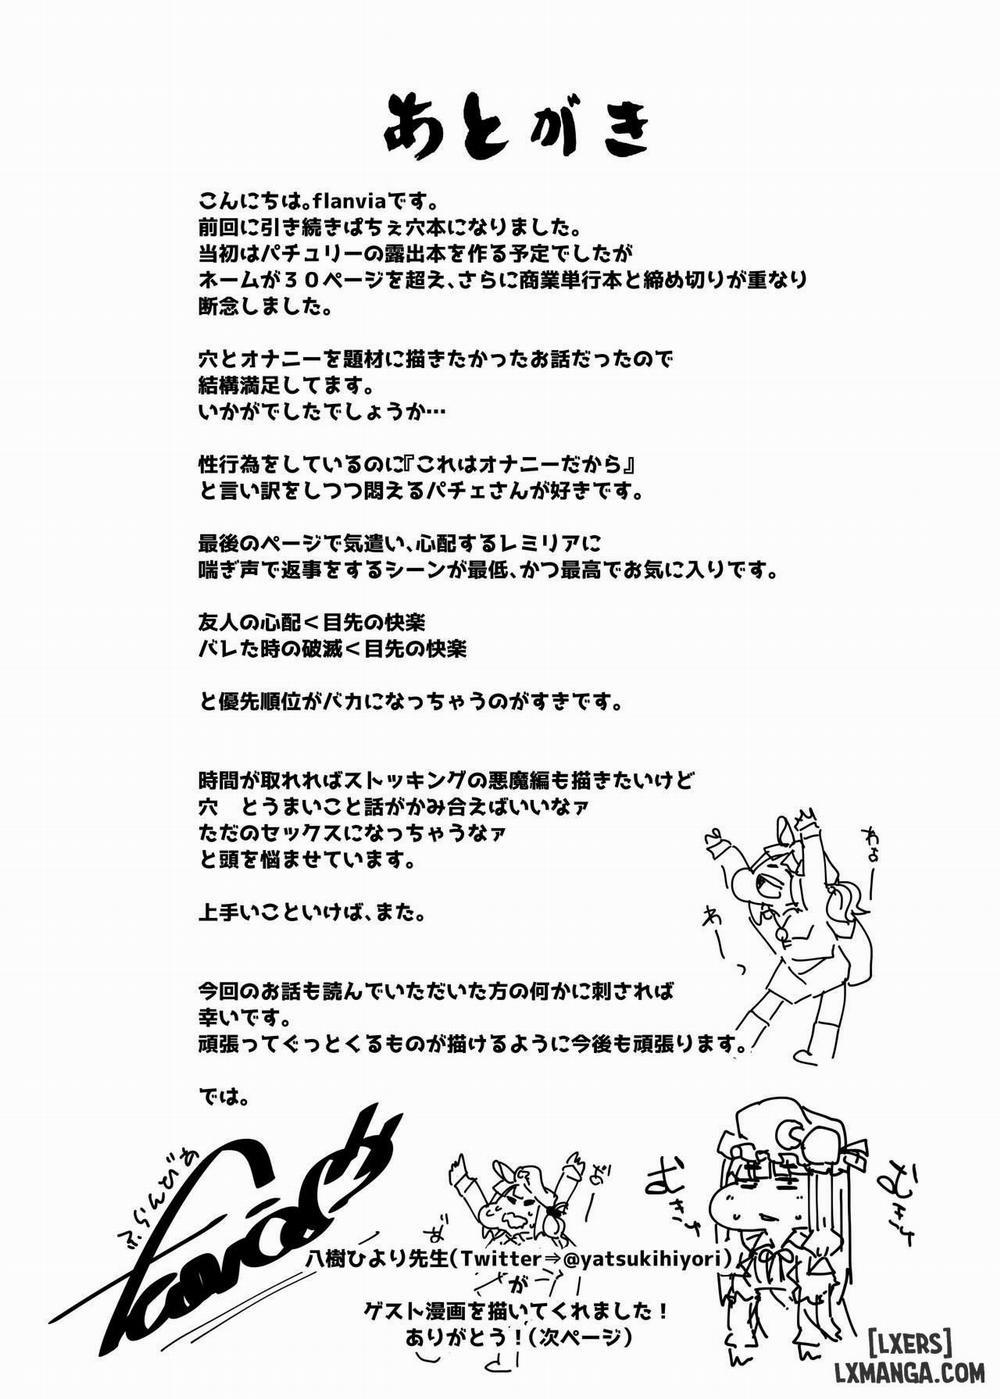 あとがき
こんにちは。flanviaです。
前回に引き続きぱちぇ穴本になりました。
当初はパチュリーの露出本を作る予定でしたが
ネームが３０ページを超え、さらに商業単行本と締め切りが重なり
断念しました。
穴とオナニーを題材に描きたかったお話だったので
結構満足してます。
いかがでしたでしょうか…
性行為をしているのに『これはオナニーだから』
と言い訳をしつつ悶えるパチェさんが好きです。
最後のページで気遣い、心配するレミリアに
喘ぎ声で返事をするシーンが最低、かつ最高でお気に入りです。
友人の心配＜目先の快楽
バレた時の破滅＜目先の快楽
と優先順位がバカになっちゃうのがすきです。
時間が取れればストッキングの悪魔編も描きたいけど
穴　とうまいこと話がかみ合えばいいなァ
ただのセックスになっちゃうなァ
と頭を悩ませています。
上手いこといけば、また。
わょー
わーっ
今回のお話も読んでいただいた方の何かに刺されば
幸いです。
頑張ってぐっとくるものが描けるように今後も頑張ります。
では。
ふらんびあ
むきゅ
むきゅ
八樹ひより先生(Twitter⇒@yatsukihiyori)
が
ゲスト漫画を描いてくれました！
ありがとう！(次ページ)
[LXERS]
LXMANGA.COM